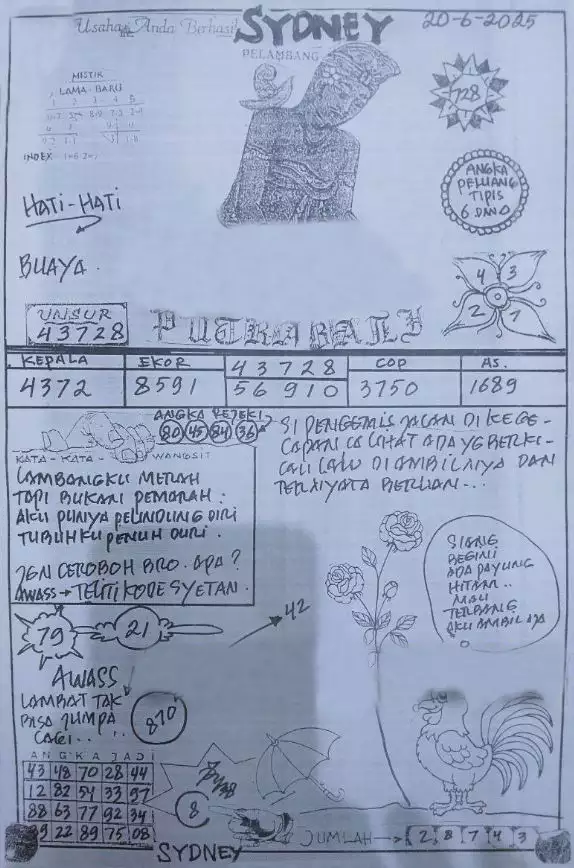 Usaha Anda Berhasil
SYDNEY
20-6-2025
PELAMBANG
MISTIK
LAMA-BARU
INDEX
728
ANGKA
PELUANG
TIPIS
6 DAN 0
HATI-HATI
BUAYA.
4 3
2 7
UNSUR
43728
PUTRA BALI
KEPALA
EKOR
43728
COP
AS.
4372
8591
56910
3750
1689
ANGKA REJEKI
80 45 84 36
KATA-KATA WANGSIT
LAMBANGKU MERAH
TAPI BUKAN PEMARAH.
AKU PUNYA PELINDUNG DIRI
TUBUHKU PENUH DURI.
JGN CEROBOH BRO. APA?
AWASS → TELITI KODE SYETAN.
SI PENGEMIS JALAN DI KEGE-
LAPAN IA LIHAT ADA YG BERKI-
LAU LALU DI AMBILNYA DAN
TERNYATA BERLIAN...
SIANG
BEGINI
ADA PAYUNG
HITAM..
MAU
TERBANG
AKU AMBIL AJA
79
21
42
AWASS
LAMBAT TAK
BISA JUMPA
LAGI...
870
ANGKA JADI
43 48 70 28 44
12 82 54 33 97
88 63 77 92 34
22 89 75 08
8
JUMLAH → 2 8 7 4 3
SYDNEY